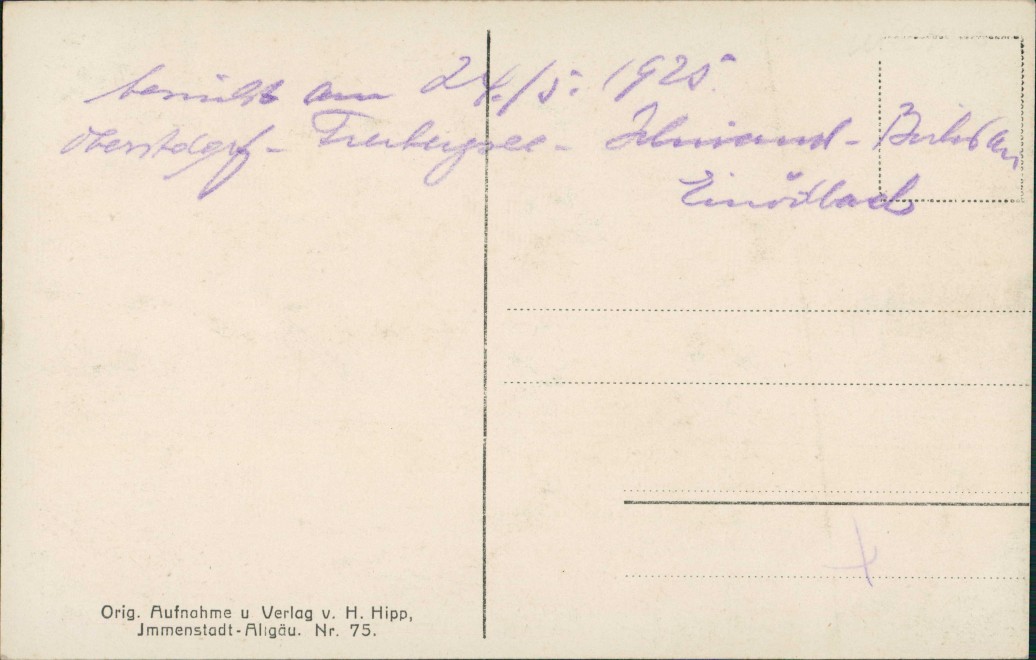 besucht am 24./5. 1925.
Oberstdorf - Freibergsee - Schwand - Birksau
Einödsbach
Orig. Aufnahme u Verlag v. H. Hipp,
Jmmenstadt-Allgäu. Nr. 75.